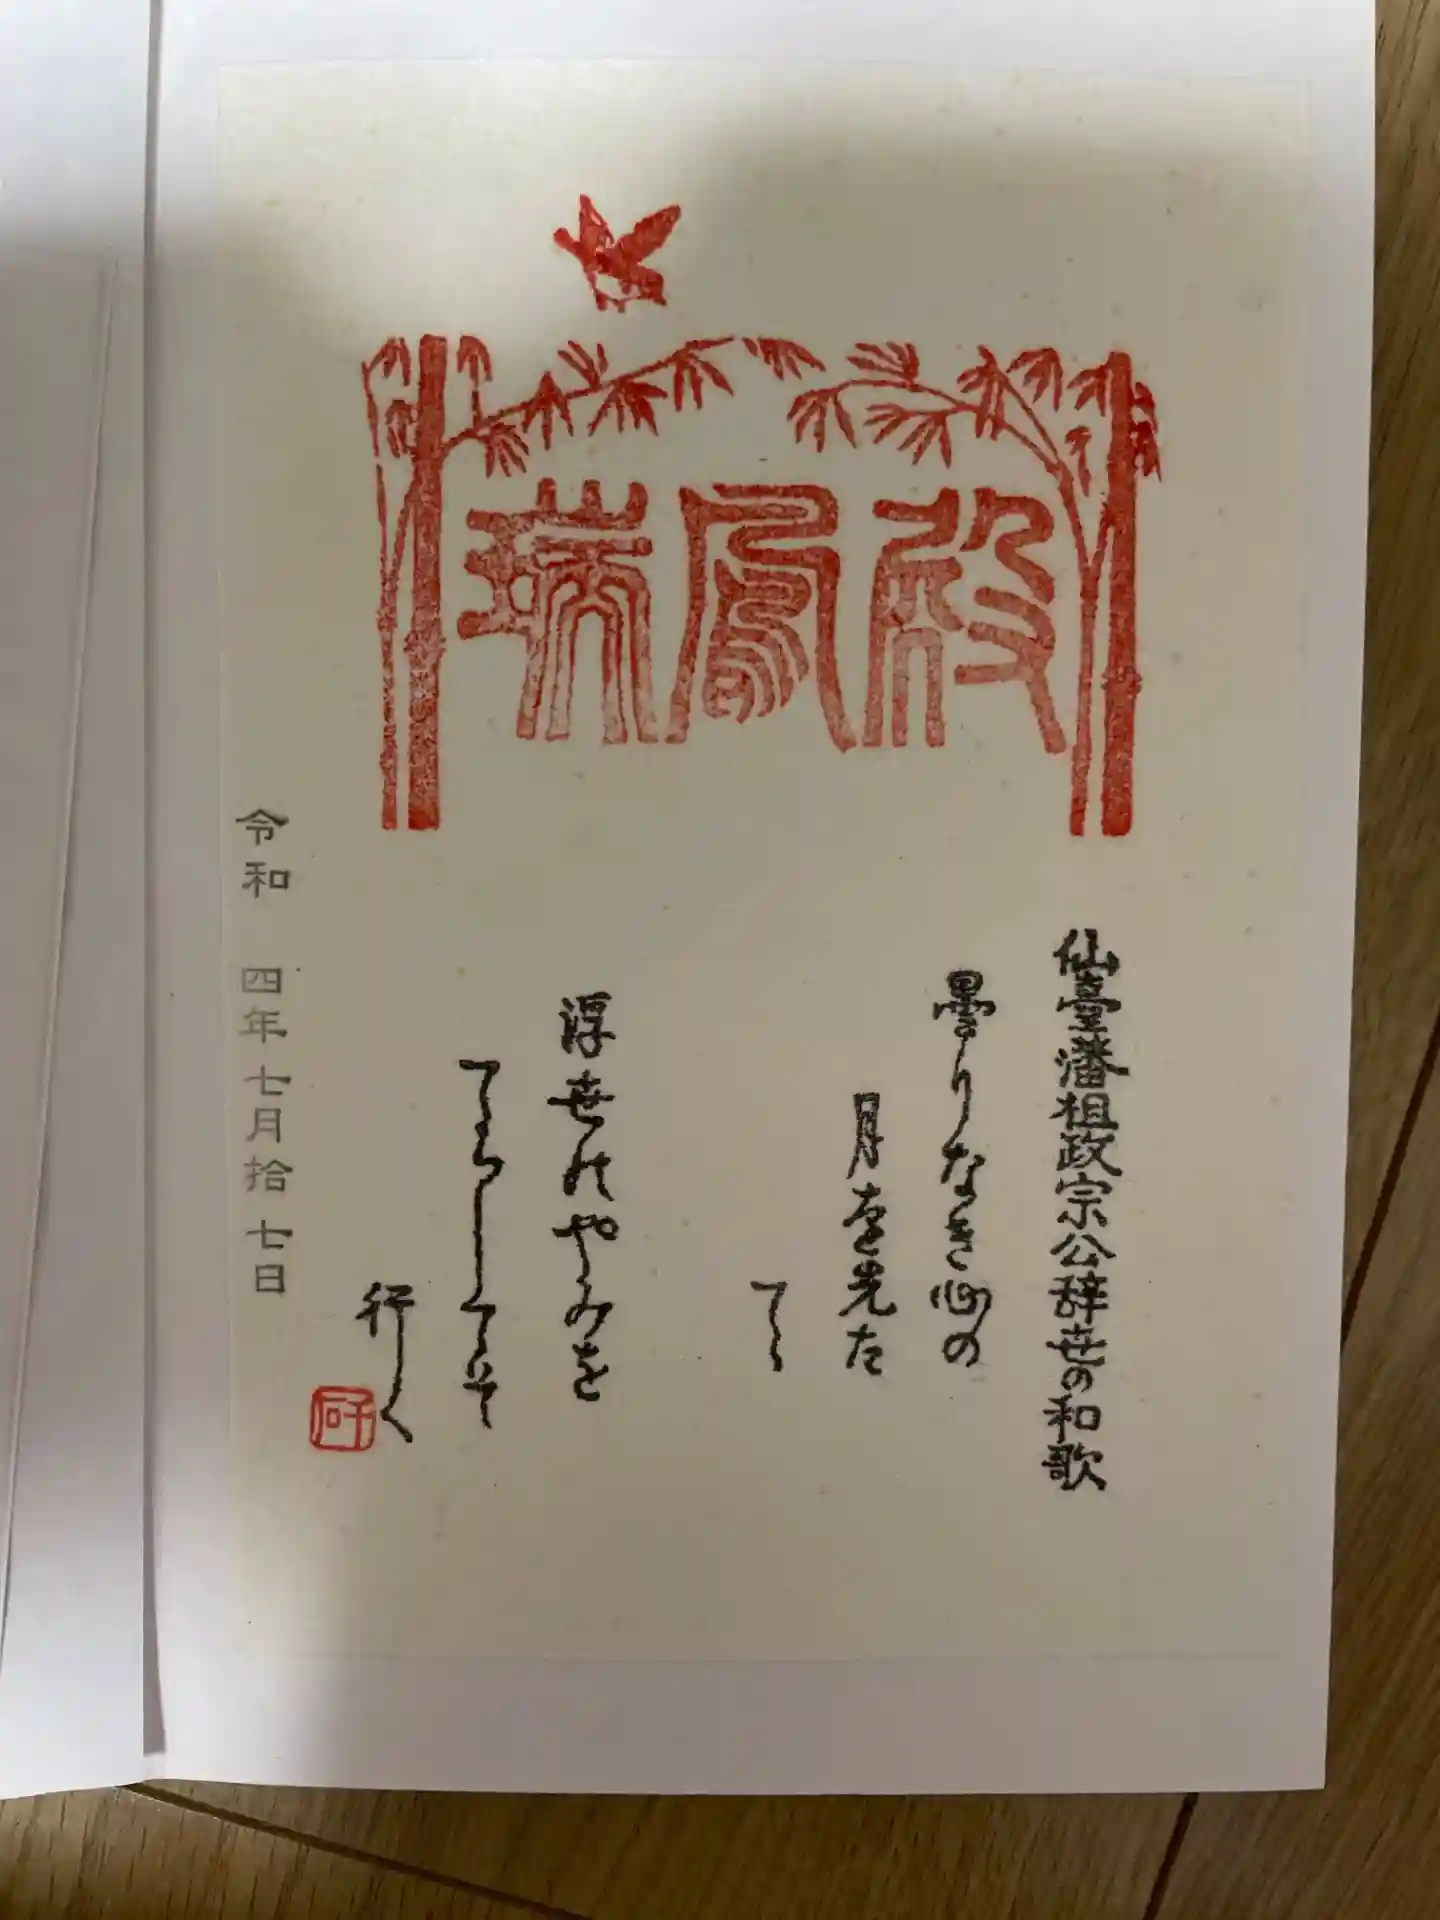 瑞鳳殿
仙臺藩祖政宗公辞世の和歌
曇りなき心の
月を先た
てゝ
浮世のやみを
てらしてそ
行く
令和 四年七月拾七日